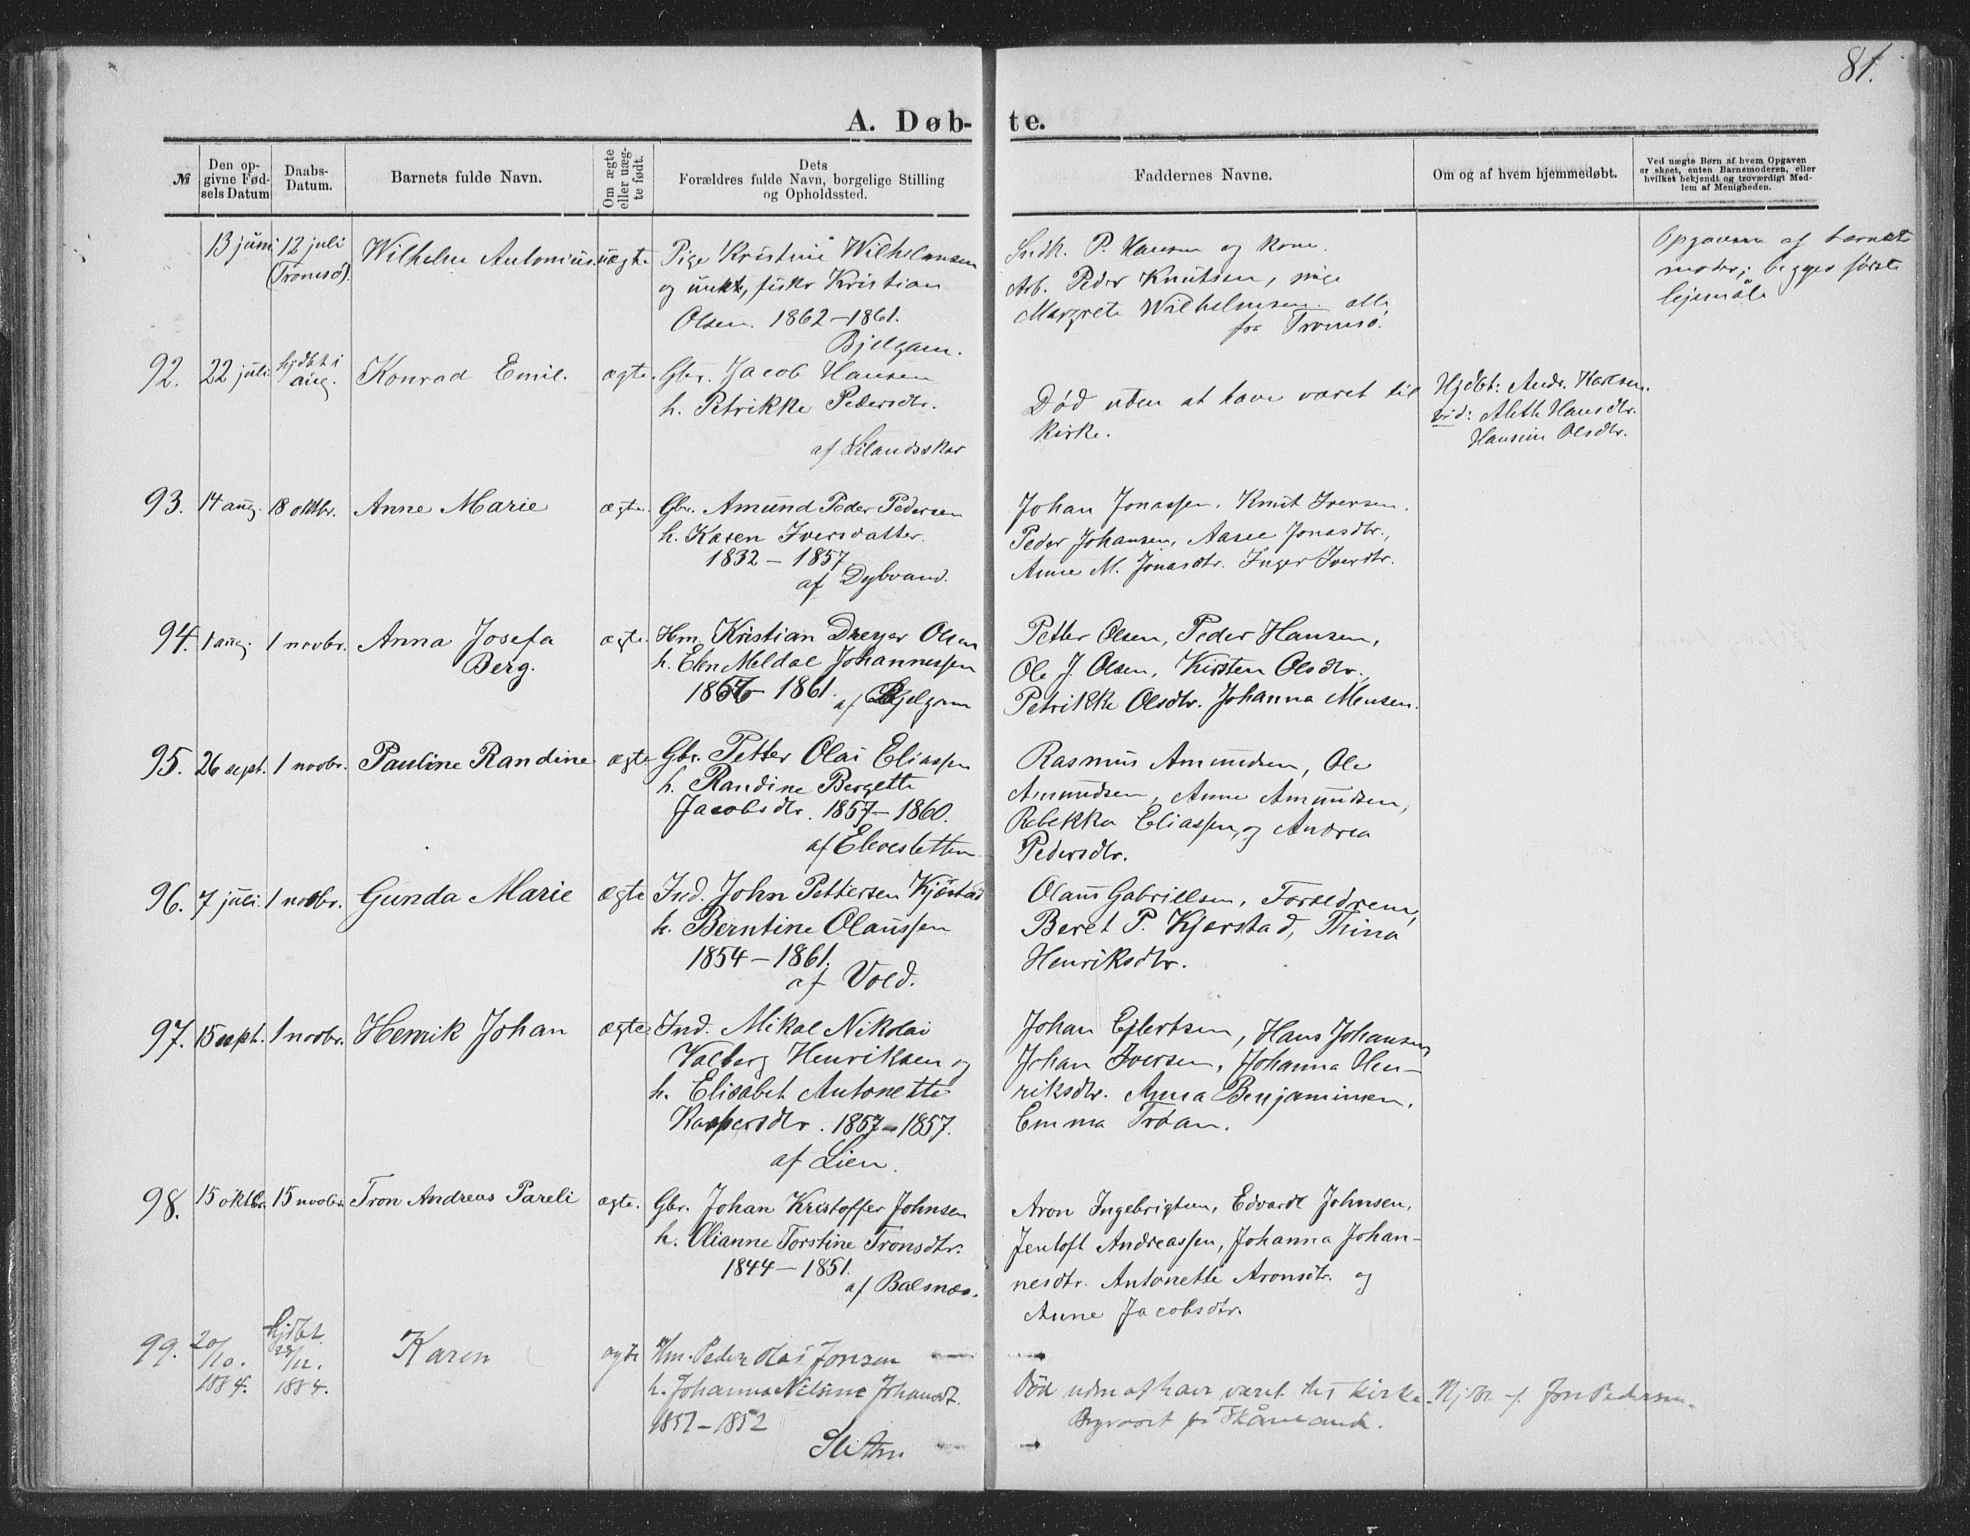 81.
A. Døb- te.
№
Den op-
givne Fød-
sels Datum
Daabs-
Datum.
Barnets fulde Navn.
Om ægte
eller uæg-
te født.
Dets
Forældres fulde Navn, borgelige Stilling
og Opholdssted.
Faddernes Navne.
Om og af hvem hjemmedøbt.
Ved uægte Børn af hvem Opgaven
er skeet, enten Barnemoderen, eller
hvilket bekjendt og troværdigt Med-
lem af Menigheden.
13 juni 12 juli Wilhelm Antonius uægte Pige Kristine Wilhelmsen
(Tromsø).
og unkk, fisker Kristian
Olsen. 1862-1861.
Bjelgam.
P. Hansen og kone.
Arb. Peder Knutsen, pige
Margrete Wilhelmsen. alle
fra Tromsø.
Opgaven af barnets
moder; begges første
lejemåls
92. 22 juli hjdbt i
aug. Konrad Emil. ægte. Gbr. Jacob Hansen
h. Petrikke Pedersdtr.
af Lilandsskar
Død uden at have været til
kirke.
Hjdbt: Andr. Hansen.
vid: Aleth Hansdtr.
Hansine Olsdtr.
93. 14 aug. 18 oktbr. Anne Marie ægte. Gbr. Amund Peder Pedersen
h. Karen Iversdatter.
1832 - 1857
af Dybvand.
Johan Jonassen. Knut Iversen.
Peder Johansen, Jonasdtr.,
Anne M. Jonasdtr. Inger Iversdtr.
94. 1 aug. 1 novbr. Anna Josefa
Berg. ægte. Hm. Kristian Dreyer Olsen
h. Elen Meldal Johannessen
1856 - 1861. af Bjelgam
Petter Olsen, Peder Hansen,
Ole J. Olsen, Kirsten Olsdtr.,
Petrikke Olsdtr. Johanna Monsen.
95. 26 sept. 1 novbr. Pauline Randine ægte Gbr. Petter Olai Eliassen
h. Randine Bergette
Jacobsdtr. 1857-1860.
af Elvesletten
Rasmus Amundsen, Ole
Amundsen, Anne Amundsen,
Rebekka Eliassen, og Andrea
Pedersdtr.
96. 7 juli. 1 novbr. Gunda Marie ægte Ind. John Pettersen Kjørstad
h. Berntine Olaussen
1854 - 1861.
af Vold.
Olaus Gabriellsen, Forældrene,
Beret P. Kjørstad, Thina
Henriksdtr.
97. 15 sept. 1 novbr. Henrik Johan ægte Ind. Mikal Nikolai
Valberg Henriksen og
h. Elisabet Antonette
Kaspersdtr. 1857-1857.
af Lien.
Johan Ejlertsen, Hans Johansen,
Johan Iversen, Johanna Hen-
riksdtr. Anna Benjaminsen.
Emma Troan.
98. 15 oktbr. 15 novbr. Tron Andreas Pareli ægte. Gbr. Johan Kristoffer Johnsen
h. Olianne Torstine Tronsdtr.
1844 - 1851.
af Balsnæs.
Aron Ingebrigtsen, Edvardt Johnsen,
Jentoft Andreassen, Johanna Johan-
nesdtr. Antonette Aronsdtr. og
Anne Jacobsdtr.
99. 20/10.
1884.
hjdbt
23/11.
1884. Karen ægte Hm. Peder Olai Jonsen
h. Johanna Nelsine Johansdt.
1857 - 1852
Død uden at have været til kirke.
Hjdbt f. Jon Pedersen.